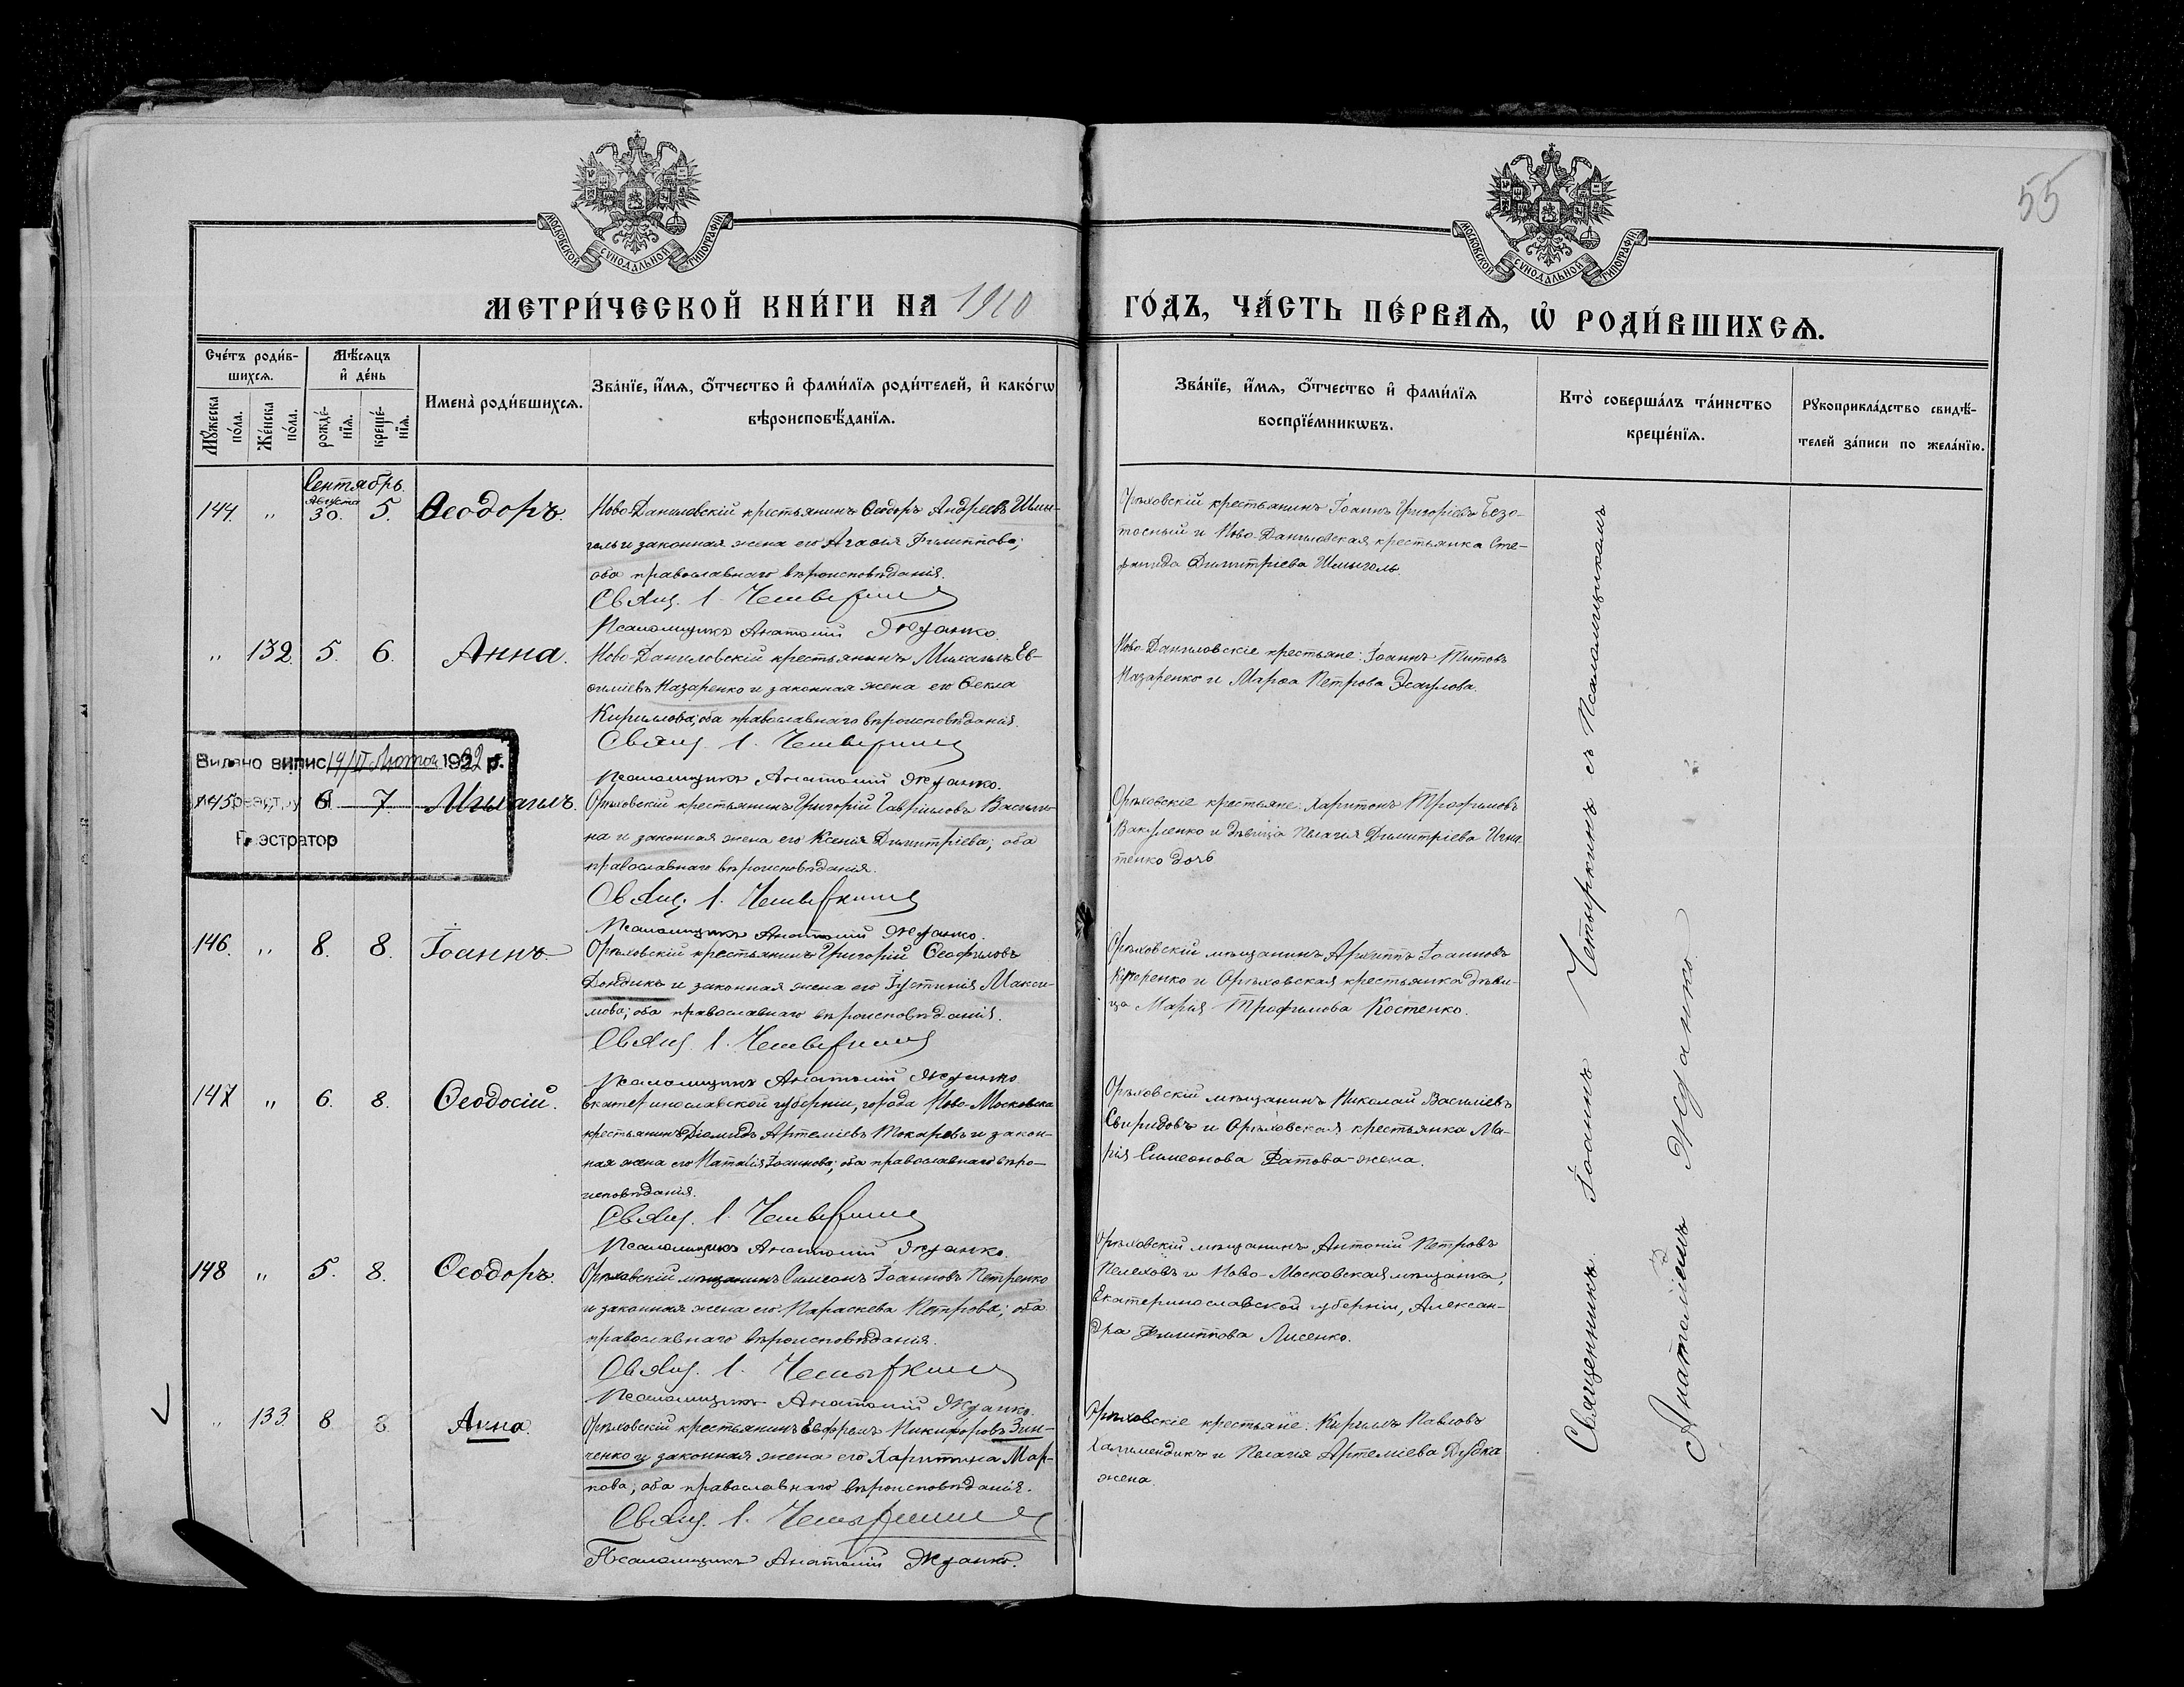 55
МОСКОВСКОЙ СѴНОДАЛЬНОЙ ТИПОГРАФІИ
МОСКОВСКОЙ СѴНОДАЛЬНОЙ ТИПОГРАФІИ
МЕТРИ́ЧЕСКОЙ КНИ́ГИ НА 1910 ГО́ДЪ, ЧА́СТЬ ПЕ́РВАѦ, Ѡ҆ РОДИ́ВШИХСѦ.
Сче́тъ роди́в-
шихсѧ.
Мꙋ́жеска по́ла.
Же́нска по́ла.
Мѣ́сѧцъ
и҆ де́нь
рожде́-
нїѧ.
креще́-
нїѧ.
Имена̀ роди́вшихсѧ.
Зва́нїе, и҆́мѧ, ѻ҆́тчество и҆ фами́лїѧ роди́телей, и҆ како́гѡ
вѣроисповѣ́данїѧ.
Зва́нїе, и҆́мѧ, ѻ҆́тчество и҆ фами́лїѧ
воспрїе́мникѡвъ.
Кто̀ соверша́лъ та́инство
креще́нїѧ.
Рꙋкоприкла́дство свидѣ́-
телей за́писи по жела́нїю.
Сентябрь.
Августа
144. " 30. 5. Ѳеодоръ.
Ново-Даниловскій крестьянинъ Ѳеодоръ Андреевъ Шмы-
голь и законная жена его Агаѳія Филиппова;
оба православнаго вѣроисповѣданія.
Свящ. І. Четыркинъ
Псаломщикъ Анатолій Жданко.
Орѣховскій крестьянинъ Іоаннъ Григоріевъ Безо-
тосный и Ново-Даниловская крестьянка Сте-
фанида Димитріева Шмыголь
" 132. 5. 6. Анна.
Ново-Даниловскій крестьянинъ Михаилъ Ев-
ѳиміевъ Назаренко и законная жена его Ѳекла
Кириллова; оба православнаго вѣроисповѣданія.
Свящ. І. Четыркинъ
Псаломщикъ Анатолій Жданко.
Ново-Даниловскіе крестьяне: Іоаннъ Титовъ
Назаренко и Марѳа Петрова Эсаулова.
Видано випис 1922 р.
реєстру
Реєстратор
145. " 6. 7. Михаилъ.
Орѣховскій крестьянинъ Григорій Гавріиловъ Васили-
на и законная жена его Ксенія Димитріева; оба
православнаго вѣроисповѣданія.
Свящ. І. Четыркинъ
Псаломщикъ Анатолій Жданко.
Орѣховскіе крестьяне: Харитонъ Трофимовъ
Вакуленко и дѣвица Пелагія Димитріева Игна-
тенко дочь
146. " 8. 8. Іоаннъ
Орѣховскій крестьянинъ Григорій Ѳеофиловъ
Дондикъ и законная жена его Іустинія Макси-
мова; оба православнаго вѣроисповѣданія.
Свящ. І. Четыркинъ
Псаломщикъ Анатолій Жданко
Орѣховскій мѣщанинъ Архиппъ Іоанновъ
Кучеренко и Орѣховская крестьянка дѣви-
ца Марія Трофимова Костенко.
147 " 6. 8. Ѳеодосій.
Екатеринославской губерніи, города Ново-Московска
крестьянинъ Діомидъ Артеміевъ Токаревъ и закон-
ная жена его Наталія Іоаннова; оба православнаго вѣро-
исповѣданія.
Свящ. І. Четыркинъ
Псаломщикъ Анатолій Жданко.
Орѣховскій мѣщанинъ Николай Василіевъ
Свиридовъ и Орѣховская крестьянка Ма-
рія Симеонова Фатова-жена.
148 " 5. 8. Ѳеодоръ.
Орѣховскій мѣщанинъ Симеонъ Іоанновъ Петренко
и законная жена его Параскева Петрова; оба
православнаго вѣроисповѣданія.
Свящ. І. Четыркинъ
Псаломщикъ Анатолій Жданко.
Орѣховскій мѣщанинъ Антоній Петровъ
Пелеховъ и Ново-Московская мѣщанка,
Екатеринославской губерніи, Алексан-
дра Филиппова Лисенко.
" 133 8 8. Анна.
Орѣховскій крестьянинъ Евфремъ Никифоровъ Зин-
ченко и законная жена его Харитина Мар-
кова; оба православнаго вѣроисповѣданія.
Свящ. І. Четыркинъ
Псаломщикъ Анатолій Жданко.
Орѣховскіе крестьяне: Кириллъ Павловъ
Халимендикъ и Пелагія Артеміева Дубка
жена.
Священникъ Іоаннъ Четыркинъ съ Псаломщикомъ
Анатоліемъ Жданко.